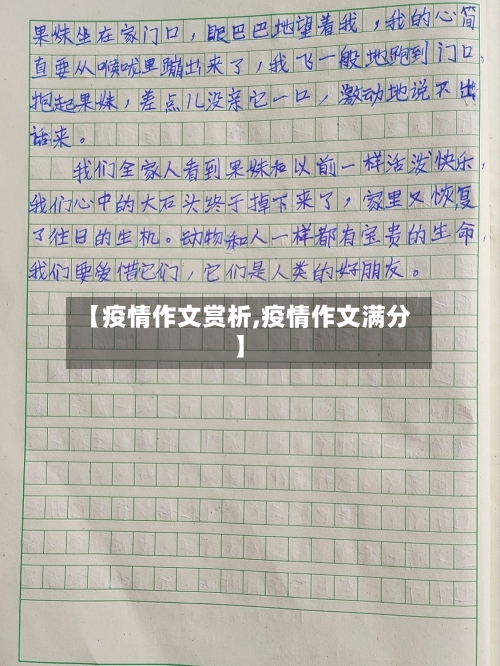 果妹坐在家门口，眼巴巴地望着我，我的心简
直要从喉咙里蹦出来了，我飞一般地跑到门口，
抱起果妹，差点儿没亲它一口，激动地说不出
话来。
我们全家人看到果妹和以前一样活泼快乐，
我们心中的大石头终于掉下来了，家里又恢复
了往日的生机。动物和人一样都有宝贵的生命，
我们要爱惜它们，它们是人类的好朋友。
【疫情作文赏析,疫情作文满分
】